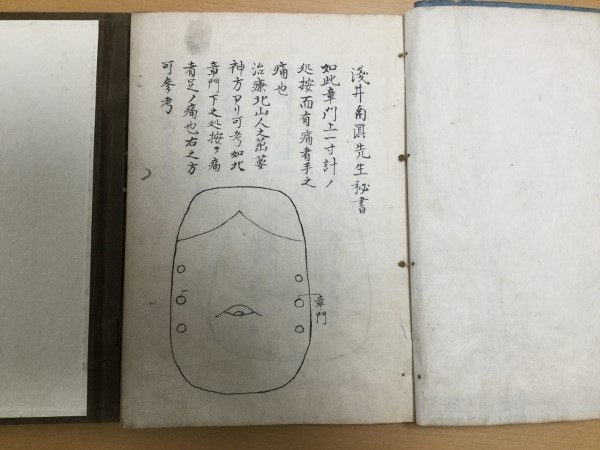 淺井南溟先生秘書
如此章門上一寸計ノ
処按而有痛者手之
痛也
治療北山人丈茁蔞
神方アリ可考如北
章門下之処按ヲ痛
者足ノ痛也右之方
可参考
章門